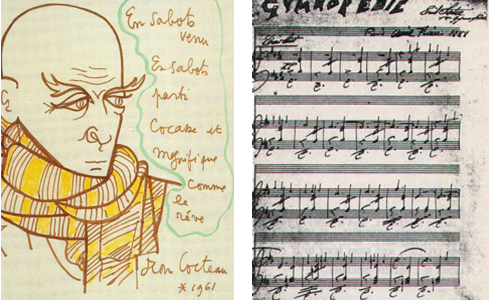 En Sabots
venu
En Sabots
parti
Cocasse et
magnifique
comme
le
rêve
Jean Cocteau
* 1961
GYMNOPÉDIE
Erik Satie
1888